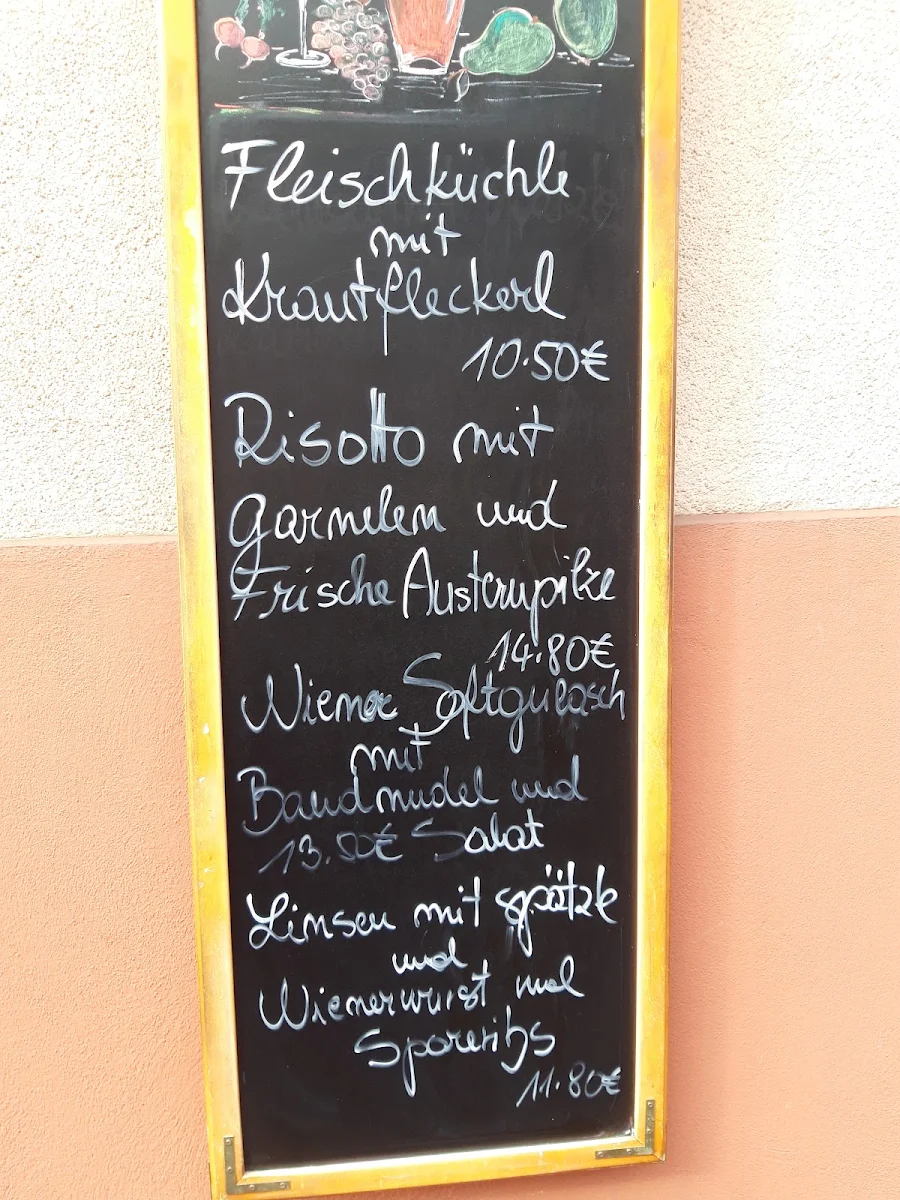 Fleischküchle
mit
Krautfleckerl
10.50€
Risotto mit
Garnelen und
Frische Austernpilze
14.80€
Wiener Saftgulasch
mit
Bandnudel und
13.50€ Salat
Linsen mit spätzle
und
Wienerwurst und
Spareribs
11.80€